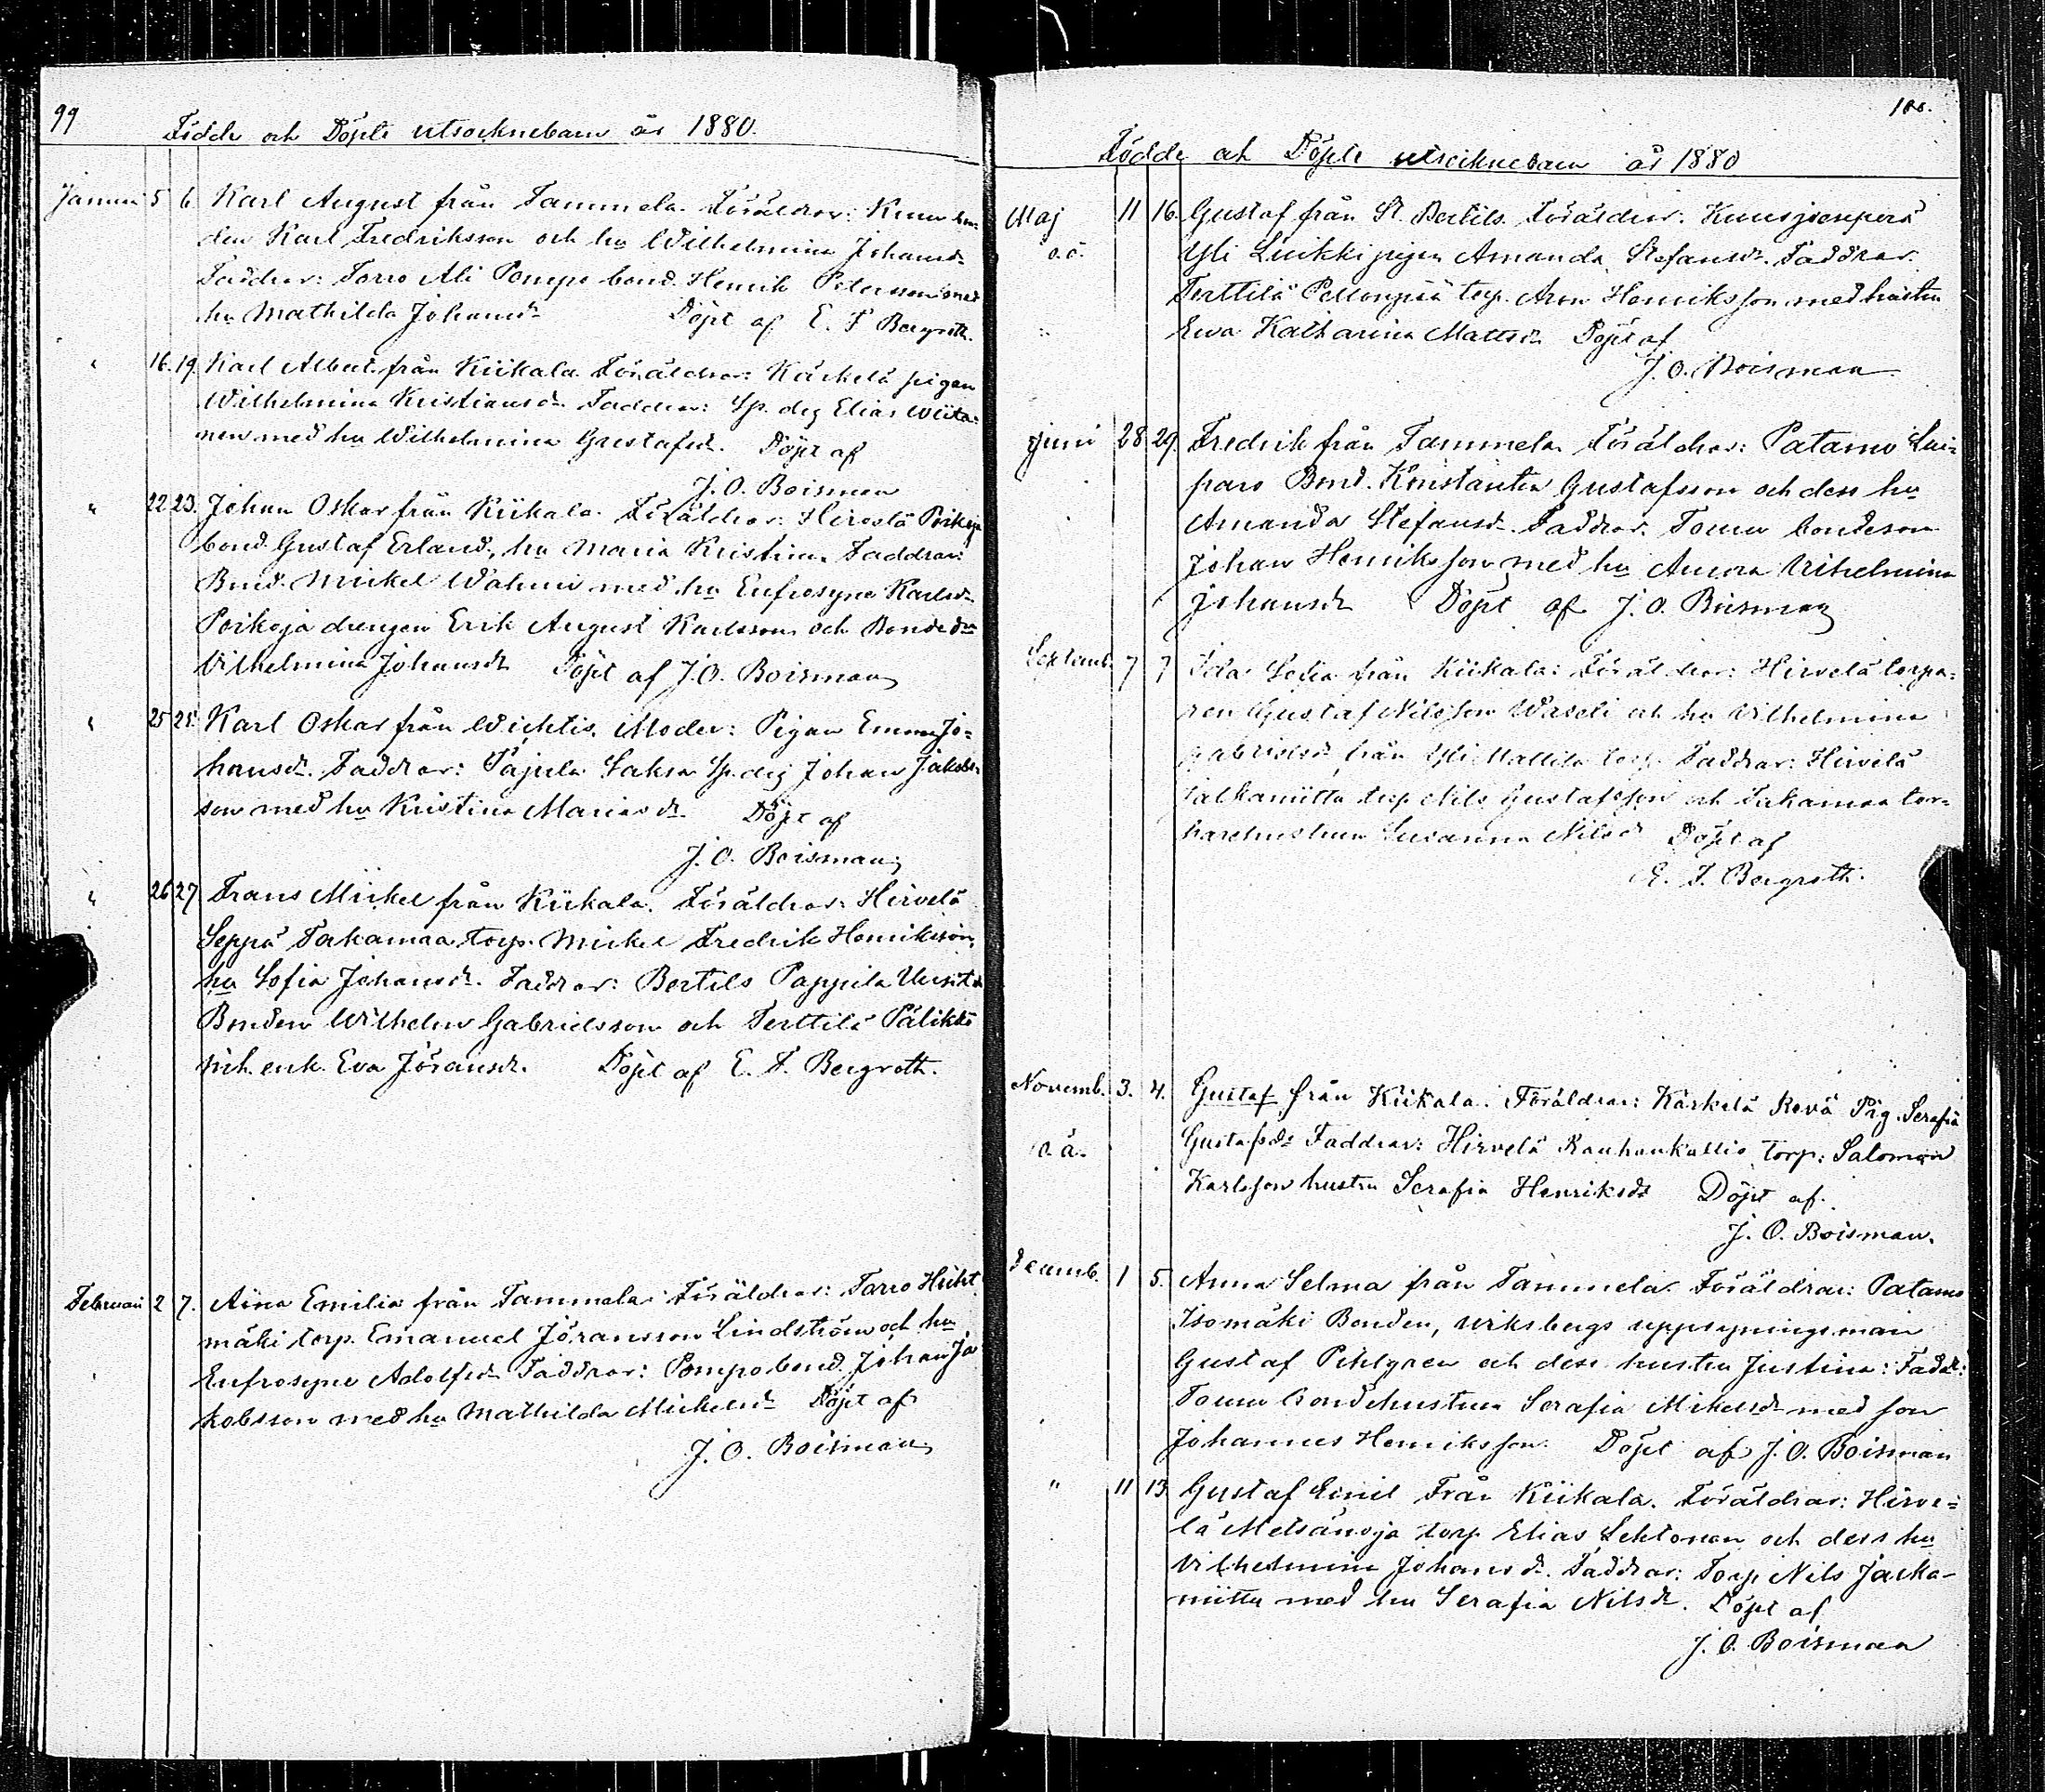 99
Födde och Döpte utsocknebarn år 1880.
Januari 5 6 Karl August från Tammela. Föräldrar: Kuuv bon-
den Karl Fredriksson och hu Wilhelmina Johansd.
Faddrar: Torro Ali Pompo bond. Henrik Petersson med
hu Mathilda Johansdr Döpt af E. F. Bergroth.
" 16. 19. Karl Albert från Kiikala. Föräldrar: Kärkelä pigan
Wilhelmina Kristiansdr. Faddrar: Sp. deg Elias Wiita-
nen med hu Wilhelmina Gustafsdr. Döpt af
J. O. Boisman
" 22 23. Johan Oskar från Kiikala. Föräldrar: Hirvelä Poikoja
bond. Gustaf Erland, hu Maria Kristina. Faddrar:
Bond. Mickel Wahmi med hu Eufrosyne Karlsdr
Poikoja drengen Erik August Karlsson och Bondedr
Vilhelmina Johansdr Döpt af J. O. Boisman
" 25 25. Karl Oskar från Wichtis. Moder: Pigan Emma Jo-
hansdr. Faddrar: Pajula Saksa Sp. deg Johan Jakobs-
son med hu Kristina Mariasdr. Döpt af
J. O. Boisman
" 26 27 Frans Mickel från Kiikala. Föräldrar: Hirvelä
Seppä Takamaa torp. Mickel Fredrik Henriksson,
hu Sofia Johansdr. Faddrar: Bertils Pappila Uusita
Bonden Wilhelm Gabrielsson och Terttilä Pälikkö
inh. enk. Eva Jöransdr. Döpt af E. F. Bergroth.
Februari 2 7. Aina Emilia från Tammela Föräldrar: Torro Huht
mäki torp. Emanuel Jöransson Lindström och hu
Eufrosyne Adolfsdr Faddrar: Pompo bond. Johan Ja
kobsson med hu Mathilda Mickelsdr Döpt af
J. O. Boisman
100.
Födde och Döpte utsocknebarn år 1880
Maj 11 16. Gustaf från St. Bertils. Föräldrar: Kuusjoenperä
o.ä. Yli Liukki pigan Amanda Stefansdr. Faddrar
Terttilä Pellonpää torp. Aron Henriksson med hustru
Ewa Katharina Mattsdr Döpt af
J. O. Boisman
Juni 28 29. Fredrik från Tammela Föräldrar: Patamo Lui-
paro Bond. Konstantin Gustafsson och dess hu
Amanda Stefansdr. Faddrar. Touru bondeson
Johan Henriksson med hu Aurora Vilhelmina
Johansdr Döpt af J. O. Boisman
Septemb. 7 7 Ida Sofia från Kiikala: Föräldrar: Hirvelä torpa-
ren Gustaf Nilsson Waseli och hu Vilhelmina
Gabrielsdr från Yli Mattila torp. Faddrar: Hirvelä
Jalkamiitta torp Nils Gustafsson och Takamaa tor-
parehustrun Susanna Nilsdr Döpt af
E. F. Bergroth.
Novemb. 3. 4. Gustaf från Kiikala. Föräldrar: Kärkelä Revä Pig. Serafia
o. ä. Gustafsdr Faddrar: Hirvelä Rauhankallio torp: Salomon
Karlsson hustru Serafia Henriksdr Döpt af.
J. O. Boisman.
Decemb. 1 5. Anna Selma från Tammela. Föräldrar: Patamo
Isomäki Bonden, Wiksbergs uppsyningsman
Gustaf Pihlgren och dess hustru Justina: Faddr:
Touru bondehustrun Serafia Mikelsdr med son
Johannes Henriksson. Döpt af J. O. Boisman
" 11 13 Gustaf Emil Från Kiikala. Föräldrar: Hirve-
lä Metsänoja torp Elias Lehtonen och dess hu
Vilhelmina Johansdr. Faddrar: Torp Nils Jaska-
miitta med hu Serafia Nilsdr. Döpt af
J. O. Boisman